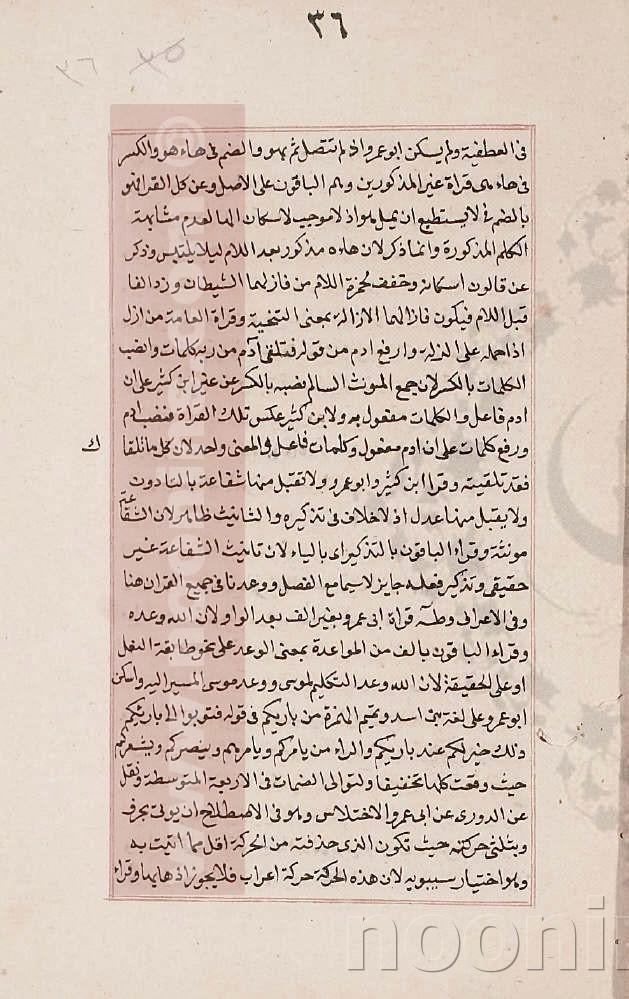 ٣٦
٣٥
٣٦
فى العطفية ولم يسكن ابو عمرو اذ لم تتصل ثم بهو والضم فى هاء هو والكسر
فى هاء هى قراة غير المذكورين وهم الباقون على الاصل وعن كل القراء
بالضم فى لا يستطيع ان يمل هو اذ لا موجب لاسكان الها لعدم مشابهة
الكلم المذكورة وانما ذكر لان هاءه مذكور بعد اللام ليلا يلتبس وذكر
عن قالون اسكانه وخفف لحمزة اللام من فازلهما الشيطان وزد الفا
قبل اللام فيكون فازالهما الازالة بمعنى التنحية وقراة العامة من ازل
اذا حمله على الزلة وارفع ادم من قوله فتلقى آدم من ربه كلمات وانصب
الكلمات بالكسر لان جمع المونث السالم نصبه بالكسر عن غير ابن كثير على ان
ادم فاعل والكلمات مفعول به ولابن كثير عكس تلك القراة فنصب ادم
ورفع كلمات على ان ادم مفعول وكلمات فاعل والمعنى واحد لان كل ما تلقا
ك
فقد تلقيته وقرا ابن كثير وابو عمرو ولا تقبل منها شفاعة بالتا دون
ولا يقبل منها عدل اذ لا خلاف فى تذكيره والتانيث ظاهر لان الشفاعة
مونثة وقراء الباقون بالتذكير اى بالياء لان تانيث الشفاعة غير
حقيقى وتذكير فعله جايز لا سيما مع الفصل ووعدنا فى جميع القران هنا
وفى الاعراف وطه قراة ابى عمرو بغير الف بعد الواو لان الله وعده
وقراء الباقون بالف من المواعدة بمعنى الوعد على نحو طابقة النعل
او على الحقيقة لان الله وعد التكليم لموسى ووعد موسى المسير اليه واسكن
ابو عمرو على لغة بنى اسد وتميم الهمزة من باريكم فى قوله فتوبوا الى باريكم
ذلكم خير لكم عند باريكم والراء من يامركم ويامرهم وينصركم ويشعركم
حيث وقعت كلها تخفيفا ولتوالى الضمات فى الاربعة المتوسطة ونقل
عن الدورى عن ابى عمرو الاختلاس وهو فى الاصطلاح ان يوتى بحرف
وبثلثى حركته حيث تكون الذى حذفته من الحركة اقل مما اتيت به
وهو اختيار سيبويه لان هذه الحركة حركة اعراب فلا يجوز اذهابها وقراء